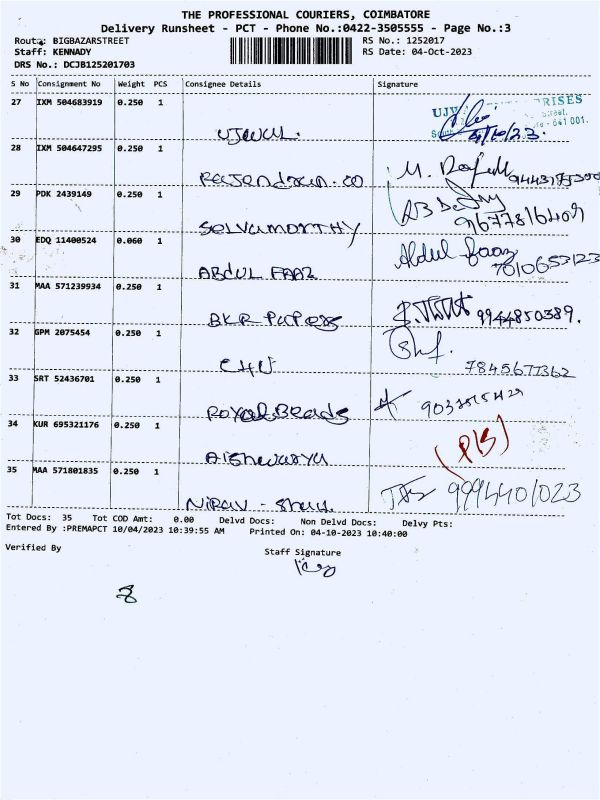 THE PROFESSIONAL COURIERS, COIMBATORE
Delivery Runsheet - PCT - Phone No.:0422-3505555 - Page No.:3
Route: BIGBAZARSTREET
RS No.: 1252017
Staff: KENNADY
RS Date: 04-Oct-2023
DRS No.: DCJB125201703
S No Consignment No Weight PCS Consignee Details Signature
27 IXM 504683919 0.250 1
UJWAL.
4/10/23.
641 001.
28 IXM 504647295 0.250 1
Rajendran.co
M.
29 PDK 2439149 0.250 1
Selvamorthy
9677816409
30 EDQ 11400524 0.060 1
ABDUL FAAZ
Abdul faaz
7010653123
31 MAA 571239934 0.250 1
BKR Papers
9944850389.
32 GPM 2075454 0.250 1
7845677362
33 SRT 52436701 0.250 1
Royal Beads
34 KUR 695321176 0.250 1
Aishwarya
35 MAA 571801835 0.250 1
Nirav - Shah
9994401023
Tot Docs: 35 Tot COD Amt: 0.00 Delvd Docs: Non Delvd Docs: Delvy Pts:
Entered By :PREMAPCT 10/04/2023 10:39:55 AM Printed On: 04-10-2023 10:40:00
Verified By
Staff Signature